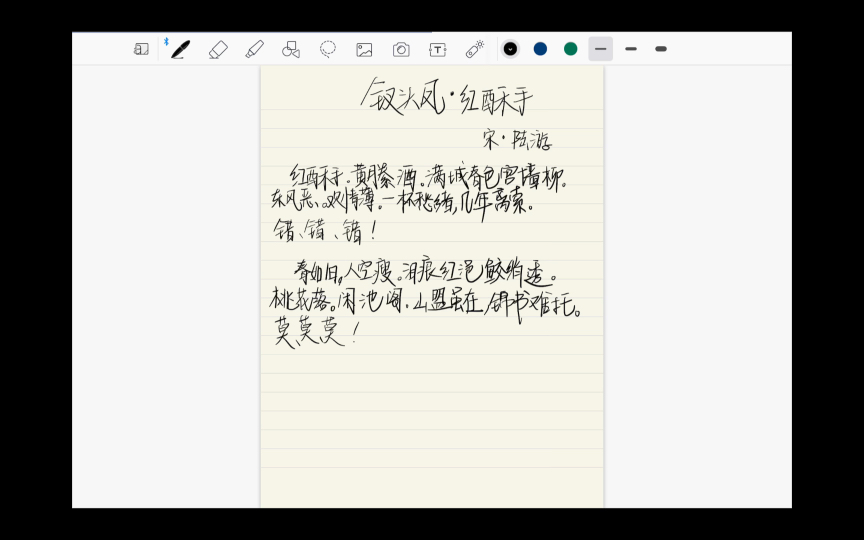 钗头凤·红酥手
宋·陆游
红酥手。黄縢酒。满城春色宫墙柳。
东风恶、欢情薄。一杯愁绪,几年离索。
错、错、错！
春如旧,人空瘦。泪痕红浥鲛绡透。
桃花落。闲池阁。山盟虽在,锦书难托。
莫、莫、莫！
T